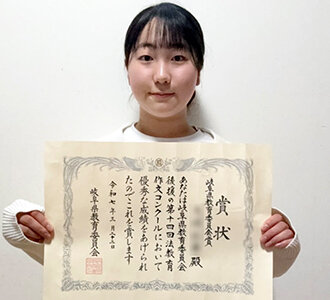 賞状
岐阜県教育委員会賞
殿
あなたは岐阜県教育委員会
後援の第十四回法教育
作文コンクールにおいて
優秀な成績をあげられ
たのでこれを賞します
令和七年三月
岐阜県教育委員会